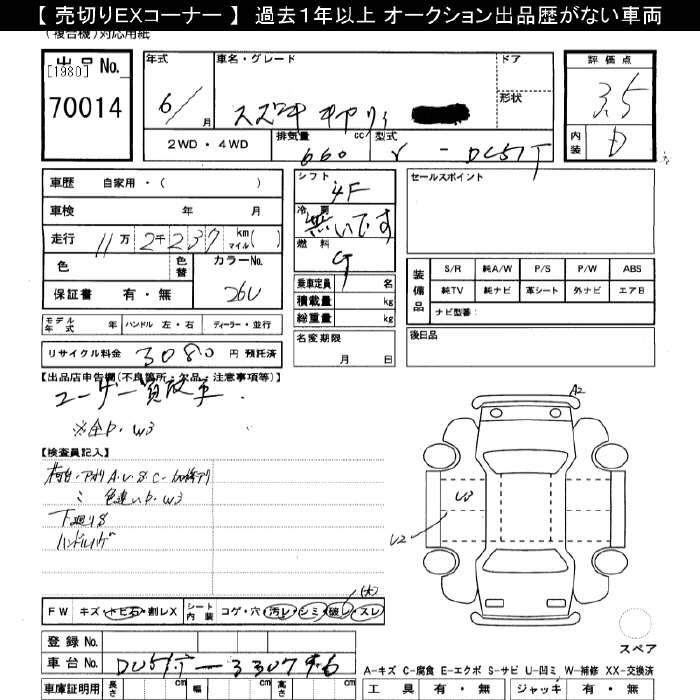 【 売切りEXコーナー 】 過去1年以上 オークション出品歴がない車両
(複合機)対応用紙
出品 No.
[1980]
70014
年式
6 / 月
車名・グレード
スズキ キャリィ
ドア
形状
2WD・4WD
排気量 660 cc
型式 V - DC51T
評価点
3.5
内装
D
車歴 自家用・( )
車検 年 月
走行 11万 2千237 km マイル( )
色
色替
カラーNo.
26U
保証書 有・無
モデル年式 年 ハンドル 左・右 ディーラー・並行
リサイクル料金 3080 円 預託済
シフト
4F
冷房
無いです
燃料
G
乗車定員 名
積載量 kg
総重量 kg
名変期限
月 日
セールスポイント
装備品
S/R 純A/W P/S P/W ABS
純TV 純ナビ 革シート 外ナビ エアB
ナビ型番:
後日品
【出品店申告欄(不良箇所・欠品・注意事項等)】
ユーザー買取車.
※全P.W3
【検査員記入】
荷台・アオリ A.U.S.C-
色違いP.W3
下廻りS
ハンドルハゲ
A2
W3
U2
FW キズ・トビ石・割レX シート内装 コゲ・穴・汚レ・シミ・破レ・スレ
(大)
登録 No.
車台 No. DC51T-330796
車庫証明用 長さ cm 幅 cm 高さ cm
スペア
A-キズ C-腐食 E-エクボ S-サビ U-凹ミ W-補修 XX-交換済
工具 有・無 ジャッキ 有・無